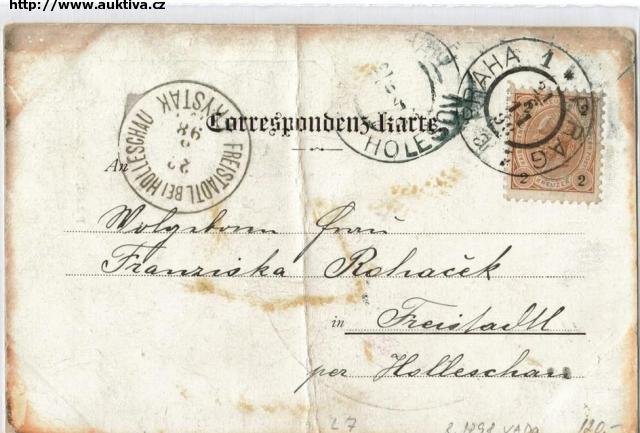 http://www.auktiva.cz
PRAHA 1
PRAG
HOLEŠOV
FREISTADTL BEI HOLLESCHAU
FRYŠTÁK
98
Correspondenz-Karte
An
2 2
Wolgeborn Frau
Franziska Rohaček
in Freistadtl
per Holleschau
L7
1898
120.-